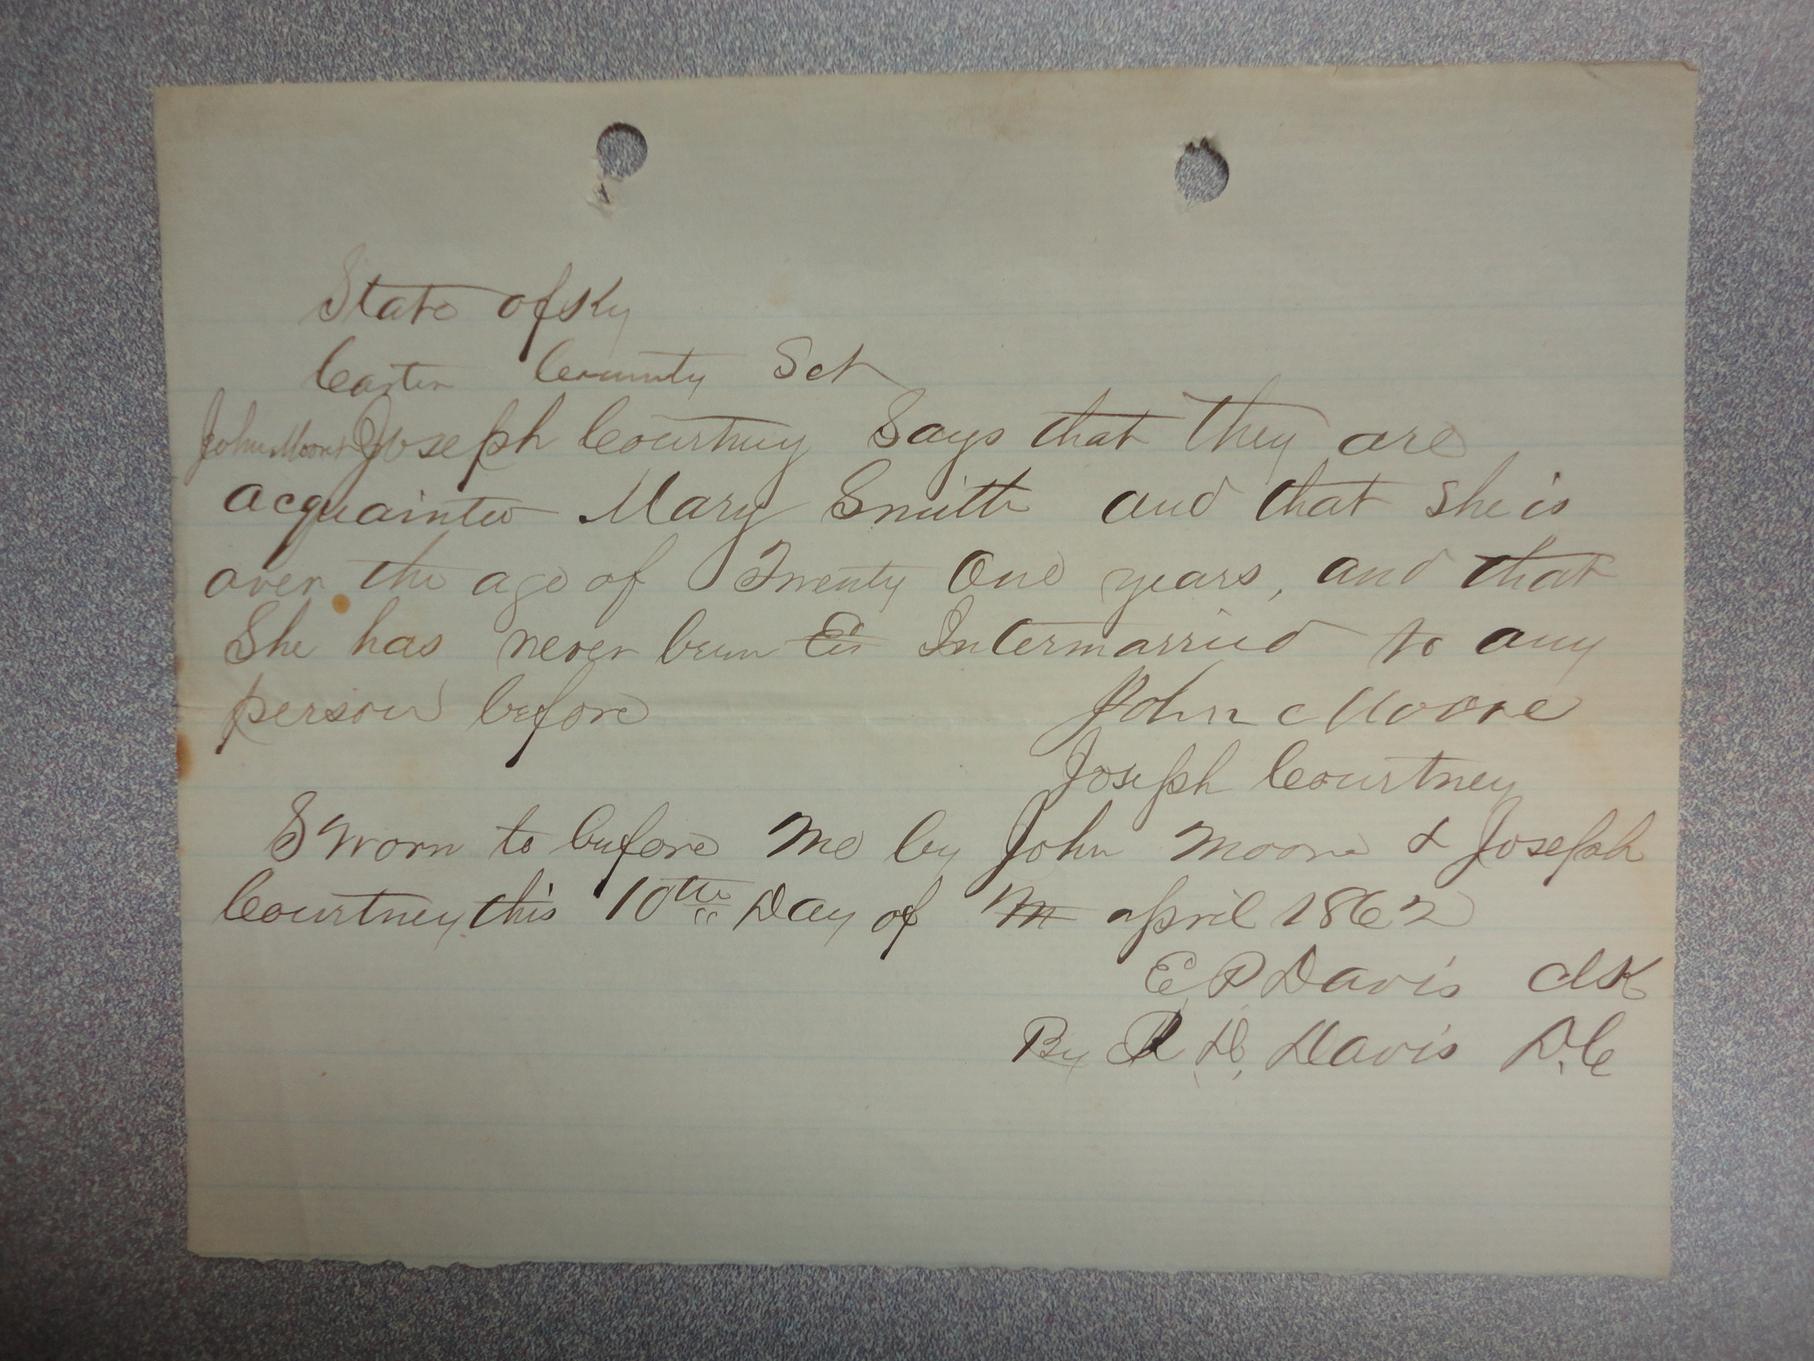 State of Ky
Carter County Sct
John Moore & Joseph Courtney Says that they are
acquainted Mary Smith and that She is
over the age of Twenty One years, and that
She has never been Intermarried to any
person before John Moore
Joseph Courtney
Sworn to before me by John Moore & Joseph
Courtney this 10th Day of M april 1862
E P Davis Clk
By R D, Davis D.C